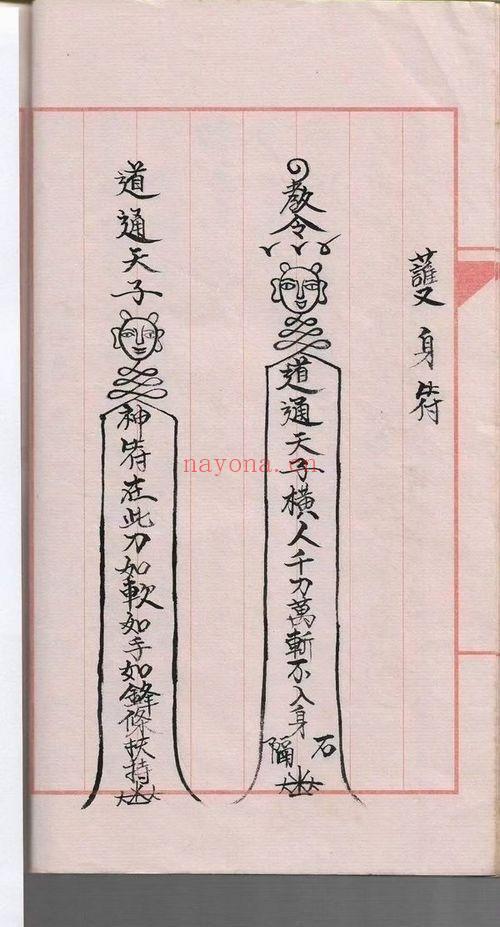 護身符
敎令
道通天子橫人千刀萬斬不入身
隔 石
道通天子
神符在此刀如軟如手如鋒條扶持
nayona.cn